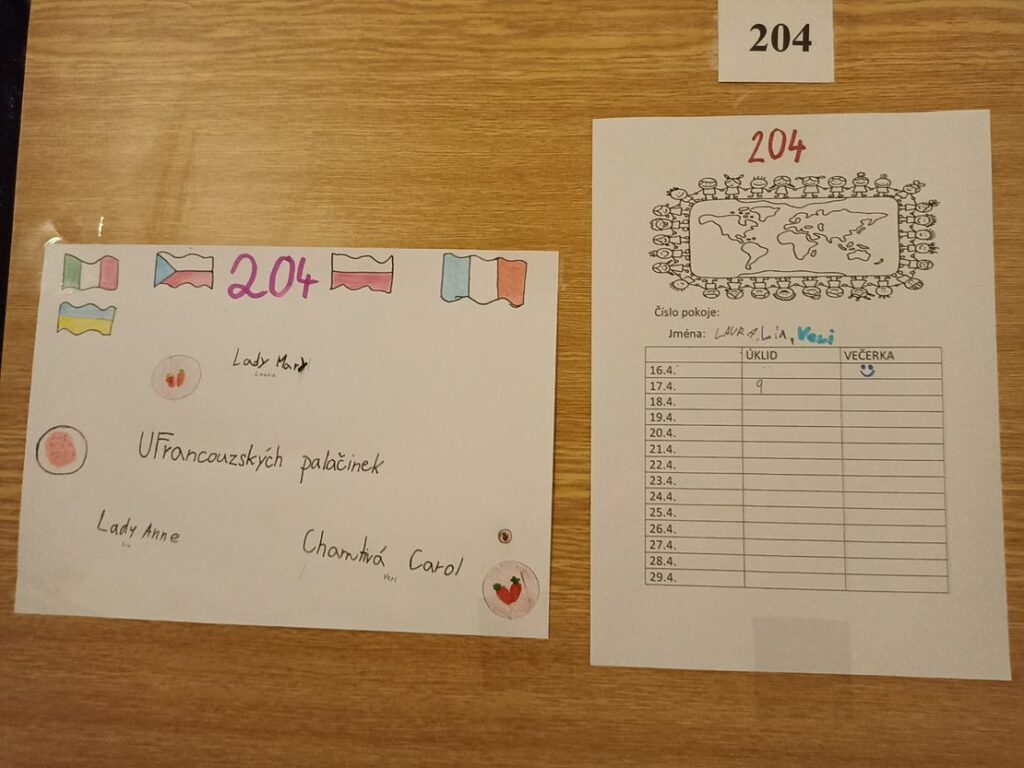 204
204
Lady Mary
Laura
U Francouzských palačinek
Lady Anne
Lia
Chamtivá Carol
Veri
204
Číslo pokoje:
Jména: LAURA, Lia, Veri
ÚKLID VEČERKA
16.4.
17.4. 9
18.4.
19.4.
20.4.
21.4.
22.4.
23.4.
24.4.
25.4.
26.4.
27.4.
28.4.
29.4.